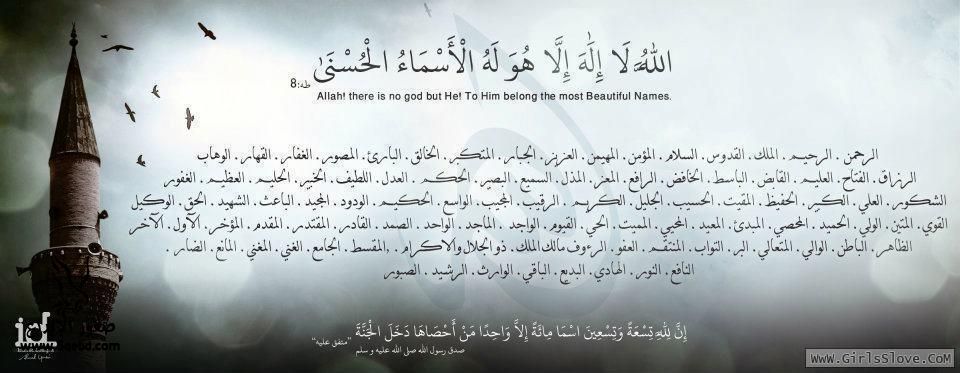 اللَّهُ لَا إِلَٰهَ إِلَّا هُوَ لَهُ الْأَسْمَاءُ الْحُسْنَىٰ
طه:8
Allah! there is no god but He! To Him belong the most Beautiful Names.
الرحمن . الرحيم . الملك . القدوس . السلام . المؤمن . المهيمن . العزيز . الجبار . المتكبر . الخالق . البارئ . المصور . الغفار . القهار . الوهاب
الرزاق . الفتاح . العليم . القابض . الباسط . الخافض . الرافع . المعز . المذل . السميع . البصير . الحكم . العدل . اللطيف . الخبير . الحليم . العظيم . الغفور
الشكور . العلي . الكبير . الحفيظ . المقيت . الحسيب . الجليل . الكريم . الرقيب . المجيب . الواسع . الحكيم . الودود . المجيد . الباعث . الشهيد . الحق . الوكيل
القوي . المتين . الولي . الحميد . المحصي . المبدئ . المعيد . المحيي . المميت . الحي . القيوم . الواجد . الماجد . الواحد . الصمد . القادر . المقتدر . المقدم . المؤخر . الأول . الآخر
الظاهر . الباطن . الوالي . المتعالي . البر . التواب . المنتقم . العفو . الرءوف مالك الملك . ذو الجلال والاكرام . ,المقسط . الجامع . الغني . المغني . المانع . الضار .
النافع . النور . الهادي . البديع . الباقي . الوارث . الرشيد . الصبور
إِنَّ لِلَّهِ تِسْعَةً وَتِسْعِينَ اسْمَا مِائَةً إِلاَّ وَاحِدًا مَنْ أَحْصَاهَا دَخَلَ الْجَنَّةَ "متفق عليه"
صدق رسول الله صلى الله عليه و سلم
www.GirlsSlove.com